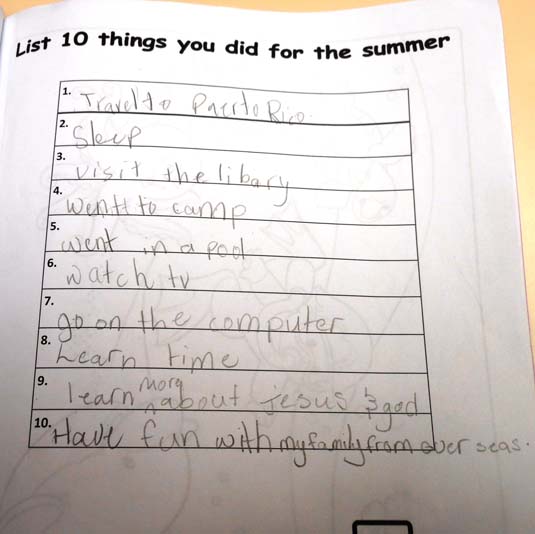 List 10 things you did for the summer
1. Travel to Paerto Rico.
2. Sleep
3. visit the libary
4. wentt to camp
5. went in a pool
6. watch tv
7. go on the computer
8. Learn time
9. learn more about jesus & god
10. Have fun with my family from over seas.